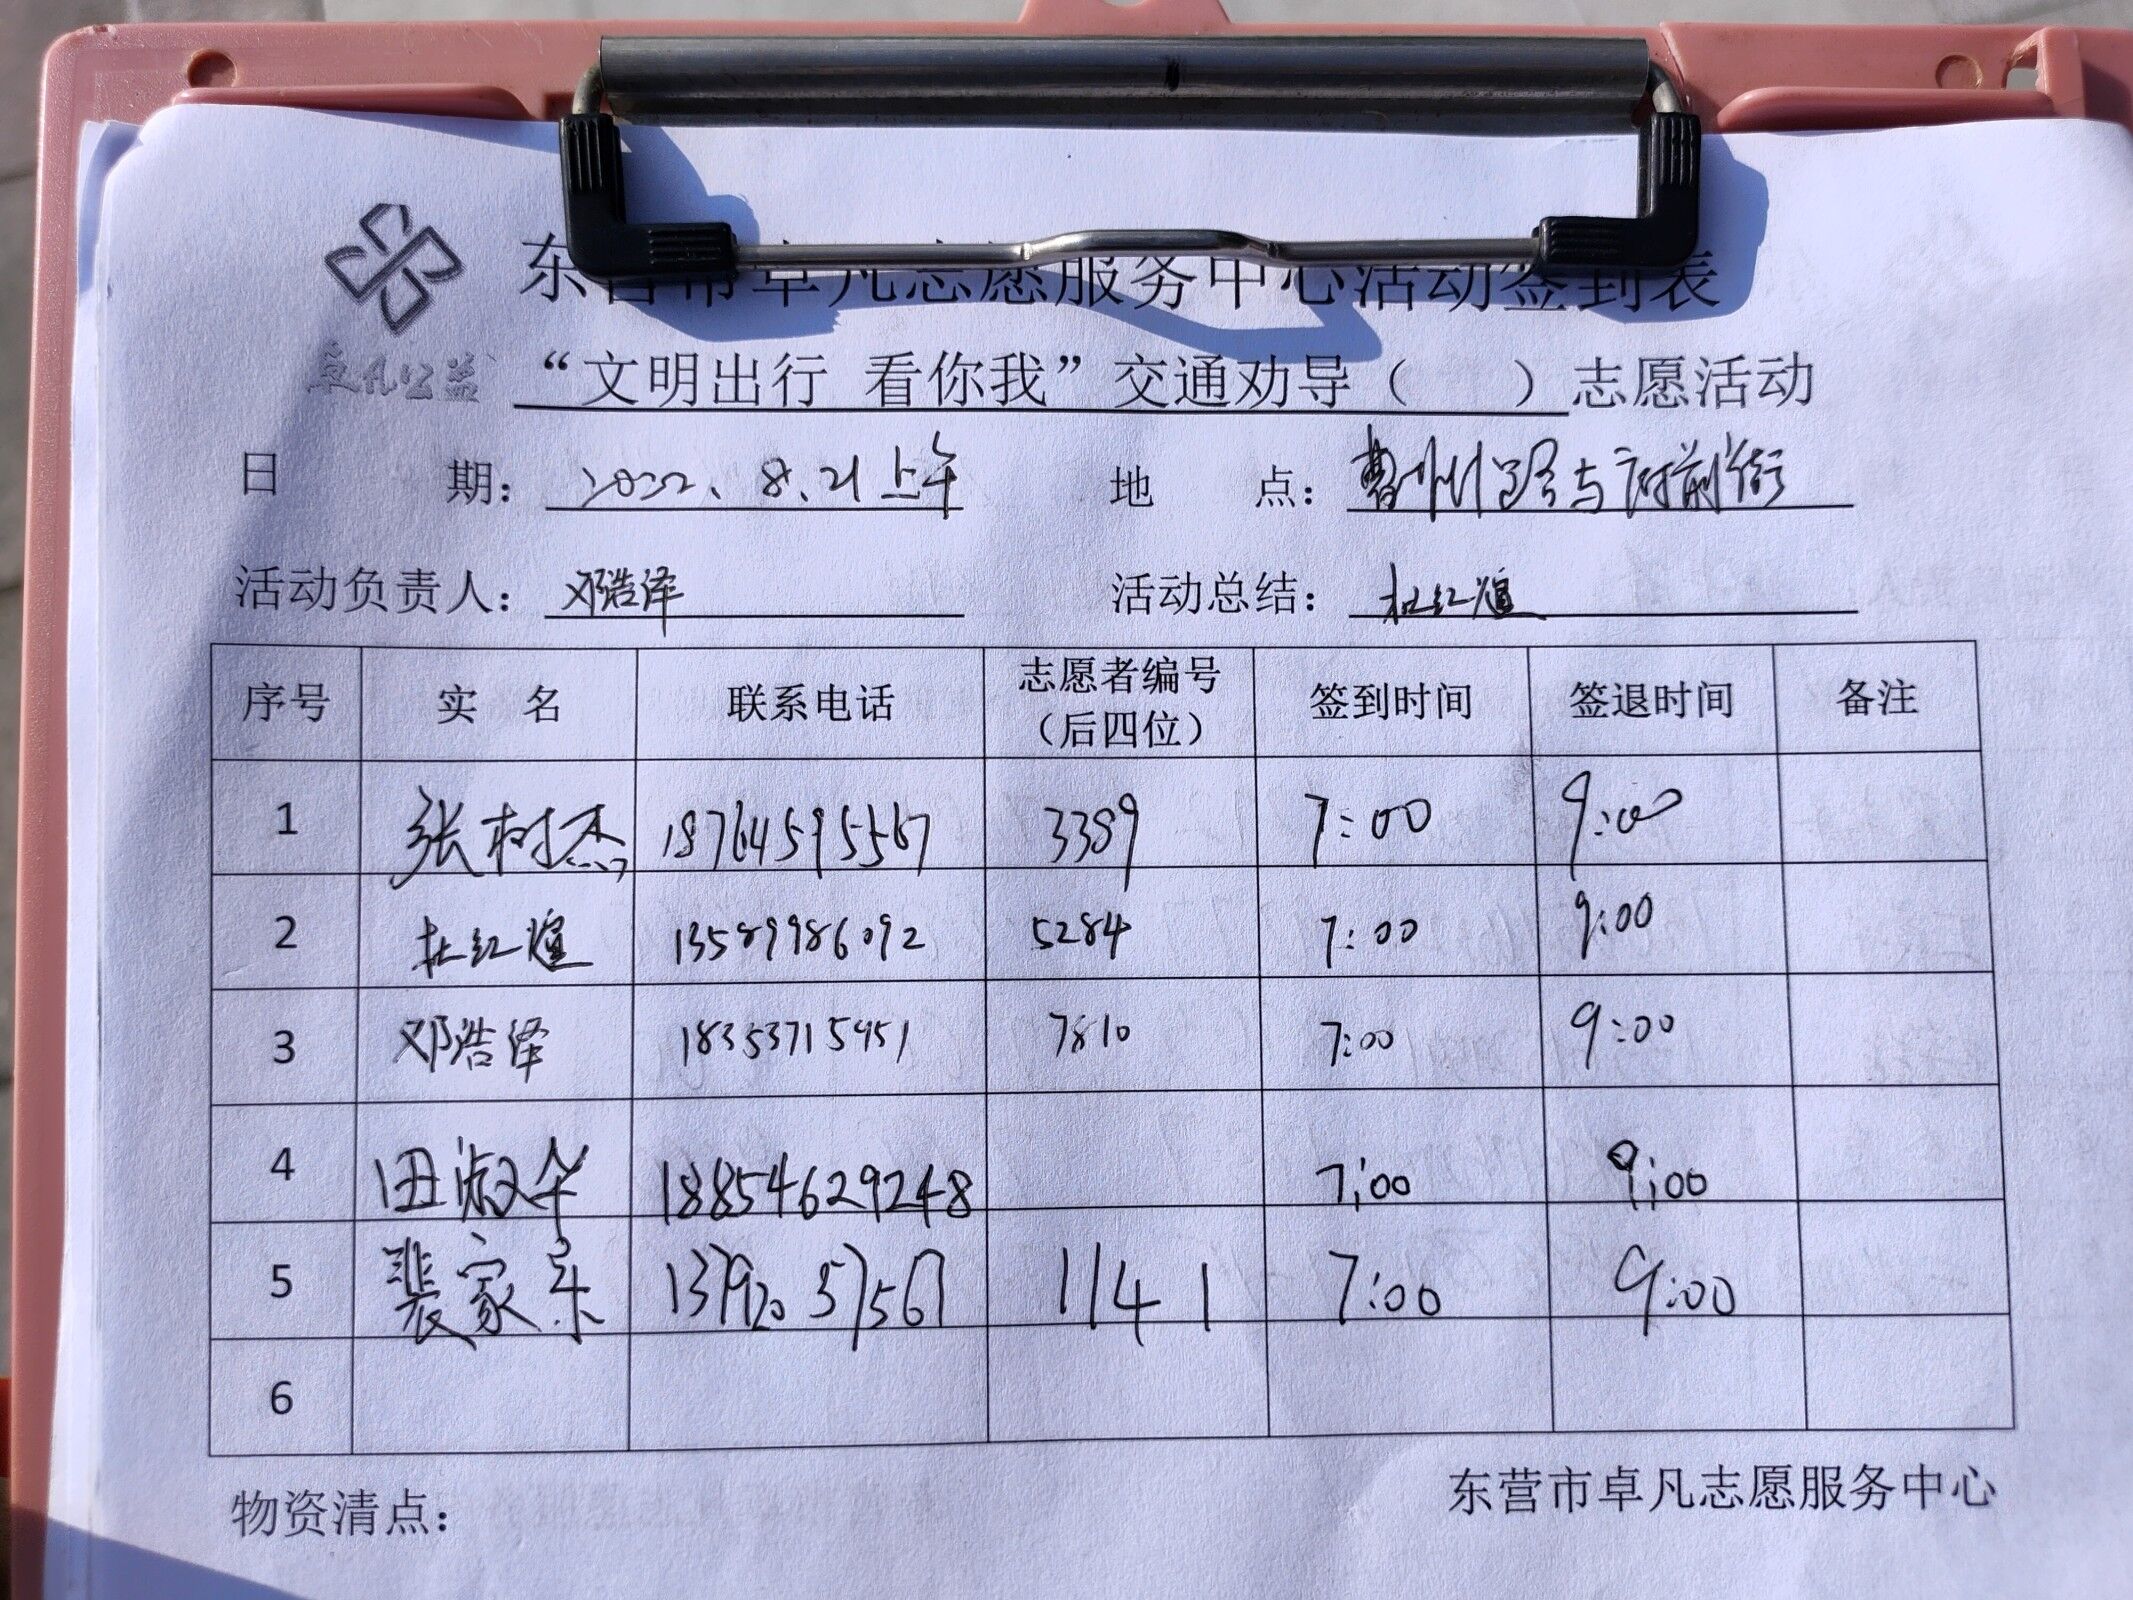 东营市卓凡志愿服务中心活动签到表
卓凡公益
“文明出行 看你我”交通劝导（ ）志愿活动
日 期： 2022.8.21上午 地 点： 曹州路与府前街
活动负责人： 邓浩泽 活动总结： 杜红煊
序号 实 名 联系电话 志愿者编号（后四位） 签到时间 签退时间 备注
1 张树杰 18764595567 3389 7:00 9:00
2 杜红煊 13589986092 5284 7:00 9:00
3 邓浩泽 18353715451 7810 7:00 9:00
4 田淑华 18854629248 7:00 9:00
5 裴家乐 1141 7:00 9:00
6
物资清点： 东营市卓凡志愿服务中心